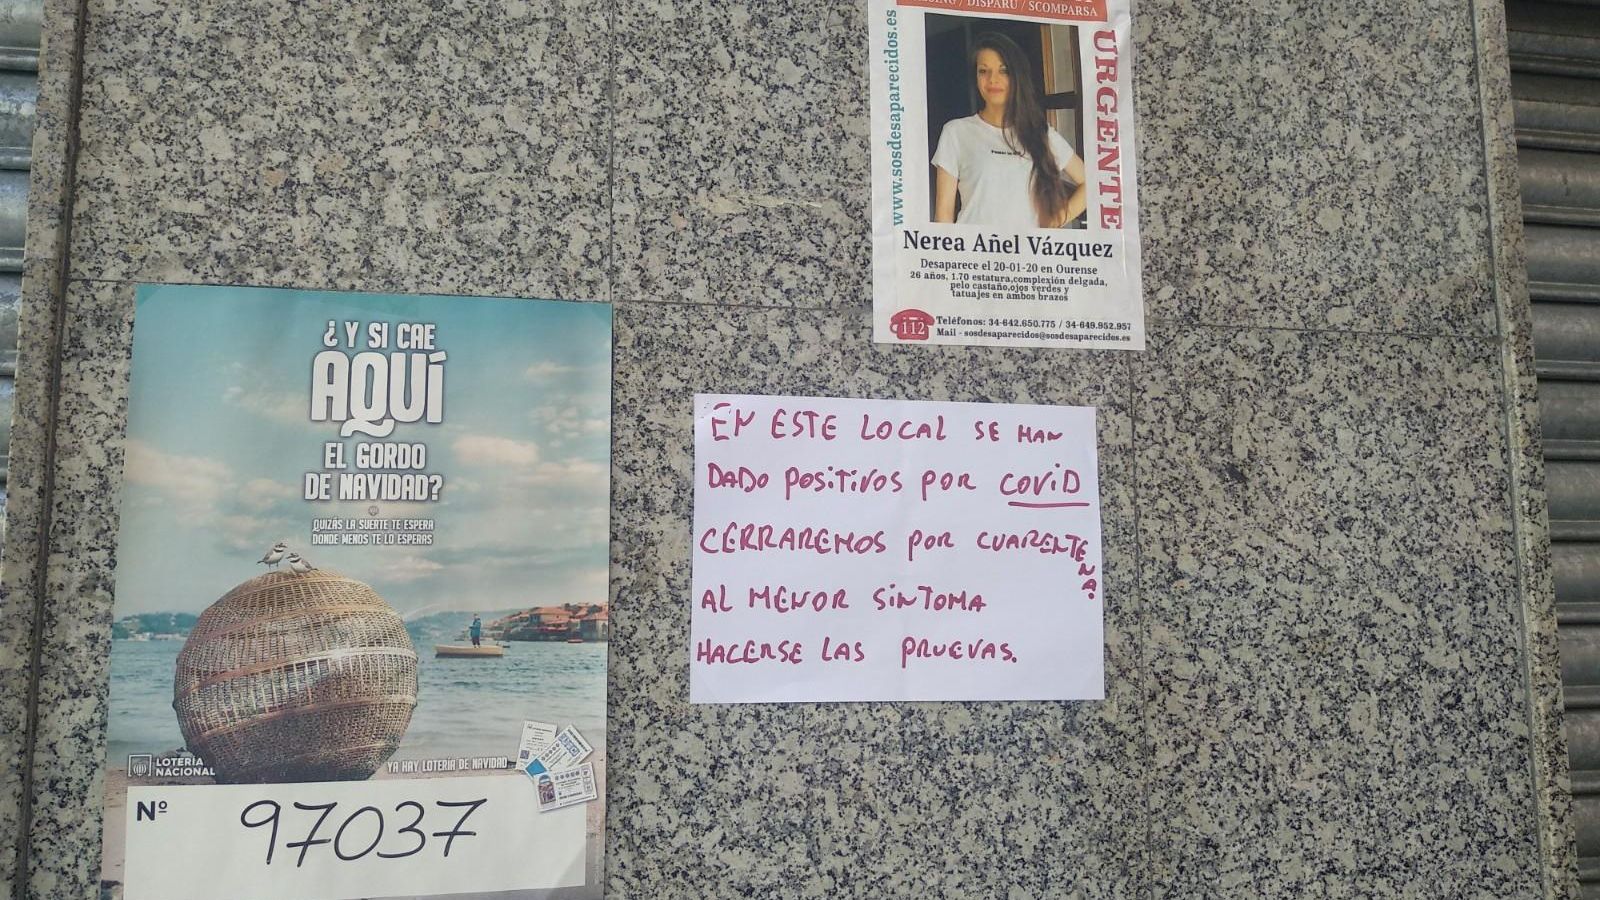 ¿Y SI CAE
AQUÍ
EL GORDO
DE NAVIDAD?
QUIZÁS LA SUERTE TE ESPERA
DONDE MENOS TE LO ESPERAS
LOTERÍA
NACIONAL
YA HAY LOTERÍA DE NAVIDAD
Nº 97037
/ DISPARU / SCOMPARSA
www.sosdesaparecidos.es
URGENTE
Nerea Añel Vázquez
Desaparece el 20-01-20 en Ourense
26 años, 1.70 estatura,complexión delgada,
pelo castaño,ojos verdes y
tatuajes en ambos brazos
112
Teléfonos: 34-642.650.775 / 34-649.952.957
Mail - sosdesaparecidos@sosdesaparecidos.es
EN ESTE LOCAL SE HAN
DADO POSITIVOS POR COVID
CERRAREMOS POR CUARENTENA.
AL MENOR SINTOMA
HACERSE LAS PRUEVAS.